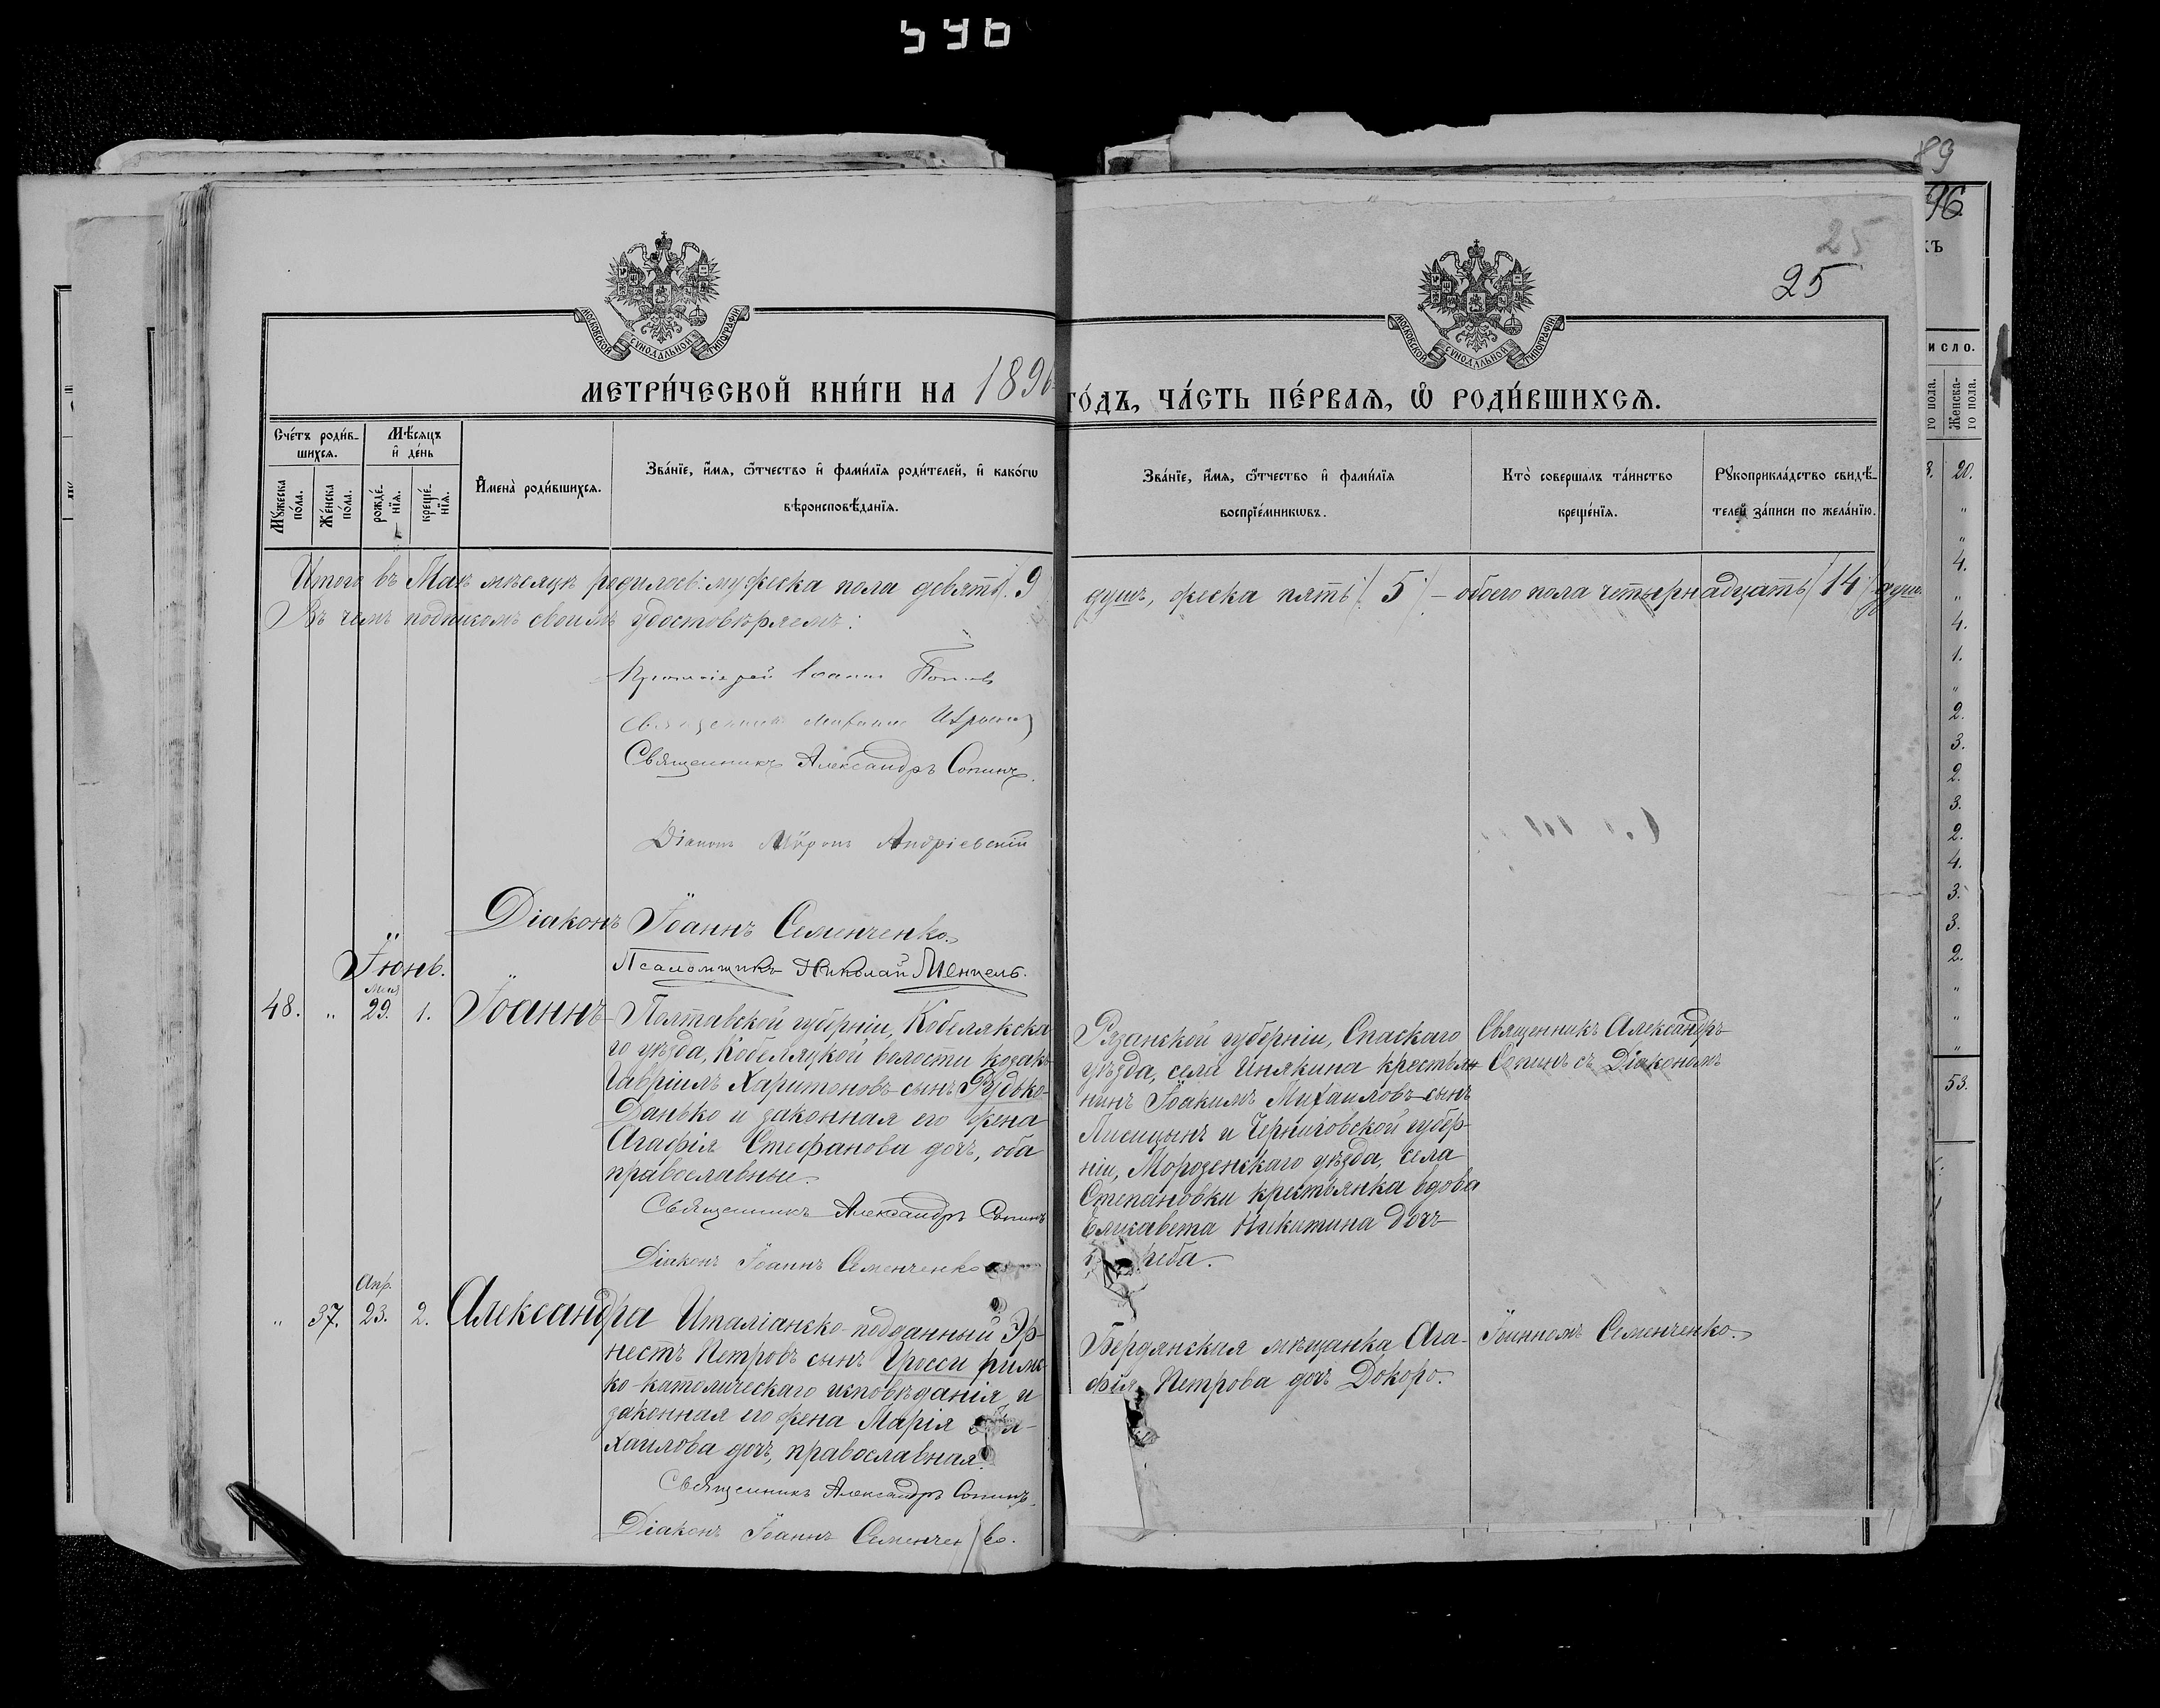 596
89
96
25
25
МОСКОВСКОЙ СУНОДАЛЬНОЙ ТИПОГРАФІИ
МОСКОВСКОЙ СУНОДАЛЬНОЙ ТИПОГРАФІИ
МЕТРИ́ЧЕСКОЙ КНИ́ГИ НА 1896
ГО́ДЪ, ЧА́СТЬ ПЕ́РВАѦ, Ѡ РОДИ́ВШИХСѦ.
Сче́тъ роди́в-
шихсѧ.
Мꙋжеска по́ла.
Же́нска по́ла.
Мѣ́сѧцъ и де́нь
рожде́-нїѧ.
креще́-нїѧ.
Имена̀ роди́вшихсѧ.
Зва́нїе, и́мѧ, ѻ́тчество и фами́лїѧ роди́телей, и како́гѡ
вѣроисповѣ́данїѧ.
Зва́нїе, и́мѧ, ѻ́тчество и фами́лїѧ
воспрїе́мникѡвъ.
Кто̀ соверша́лъ та́инство
креще́нїѧ.
Рꙋкоприкла́дство свидѣ́-
телей за́писи по жела́нїю.
Итого въ Маѣ мѣсяцѣ родилось: мужеска пола девять /. 9
душъ, женска пять /. 5 ./ – обоего пола четырнадцать /. 14 ./ душъ.
Въ чемъ подписомъ своимъ удостовѣряемъ:
Протоіерей Іоаннъ Попов
Священникъ Михаилъ
Священникъ Александръ Сопинъ.
Діаконъ Мѵронъ Андріевскій
Діаконъ Іоаннъ Семенченко.
Псаломщикъ Николай Менцель.
Іюнь.
48. „ Мая 29. 1. Іоаннъ
Полтавской губерніи, Кобелякска-
го уѣзда, Кобеляцкой волости козакъ
Гавріилъ Харитоновъ сынъ Рудько-
Данько и законная его жена
Агафія Стефанова дочь, оба
православные.
Священникъ Александръ Сопинъ
Діаконъ Іоаннъ Семенченко
Рязанской губерніи, Спаскаго
уѣзда, села Инякина крестья-
нинъ Іоакимъ Михаиловъ сынъ
Лисицынъ и Черниговской губер-
ніи, Морозенскаго уѣзда, села
Степановки крестьянка вдова
Елисавета Никитина дочь
Священникъ Александръ
Сопинъ съ Діакономъ
„ 37. Апр. 23. 2. Александра
Италіанско-подданный Эр-
нестъ Петровъ сынъ Гросси римс-
ко-католическаго исповѣданія и
законная его жена Марія Ми-
хаилова дочь, православная.
Священникъ Александръ Сопинъ.
Діаконъ Іоаннъ Семенченко.
Бердянская мѣщанка Ага-
фія Петрова дочь Докоро.
Іоанномъ Семенченко.
ХЪ
ИСЛО.
го пола.
Женска-
го пола.
3. 20.
„
„
4.
„
4.
1.
„
2.
3.
2.
3.
2.
4.
3.
3.
2.
„
„
„
53.